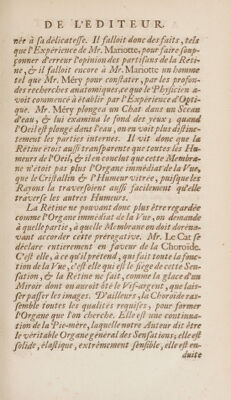 DE L'EDITEUR.
née à sa délicatesse. Il falloit donc des faits, tels
que l'Expérience de Mr. Mariotte, pour faire soup-
çonner d'erreur l'opinion des partisans de la Reti-
ne, & il falloit encore à Mr. Mariotte un homme
tel que Mr. Méry pour constater, par les profon-
des recherches anatomiques, ce que le Physicien a-
voit commencé à établir par l'Expérience d'Opti-
que. Mr. Méry plongea un Chat dans un Sceau
d'eau, & lui examina le fond des yeux; quand
l'Oeil est plongé dans l'eau, on en voit plus distinc-
tement les parties internes. Il vit donc que la
Rétine étoit aussi transparente que toutes les Hu-
meurs de l'Oeil, & il en conclut que cette Membra-
ne n'étoit pas plus l'Organe immédiat de la Vue,
que le Cristallin & l'Humeur vitrée, puisque les
Rayons la traversoient aussi facilement qu'elle
traverse les autres Humeurs.
La Rétine ne pouvant donc plus être regardée
comme l'Organe immédiat de la Vue, on demande
à quelle partie, à quelle Membrane on doit doréna-
vant accorder cette prérogative. Mr. Le Cat se
déclare entierement en faveur de la Choroïde.
C'est elle, à ce qu'il prétend, qui fait toute la fonc-
tion de la Vue, c'est elle qui est le siege de cette Sen-
sation, & la Rétine ne fait, comme la glace d'un
Miroir dont on auroit ôté le Vif-argent, que lais-
ser passer les images. D'ailleurs, la Choroïde ras-
semble toutes les qualités requises, pour former
l'Organe que l'on cherche. Elle est une continua-
tion de la Pie-mère, laquelle notre Auteur dit être
le véritable Organe général des Sensations; elle est
solide, élastique, extrêmement sensible, elle est en-
duite